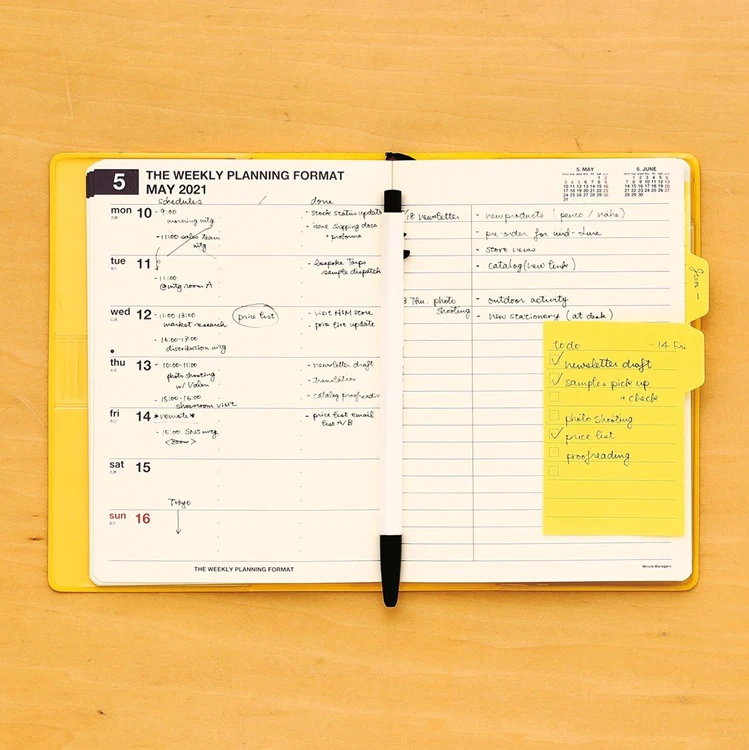 5
THE WEEKLY PLANNING FORMAT
MAY 2021
schedules
done
mon 10
- 9:00
morning mtg
- 11:00 sales team
mtg
- stock status update
- issue shipping docs
+ proforma
tue 11
- 11:00
@mtg room A
- bespoke Tarps
sample dispatch
wed 12
- 11:00-13:00
market research
price list
- 16:00-17:00
distribution mtg
- visit H&M store
- price list update
thu 13
- 10:00-11:00
photo shooting
w/
- 15:00-16:00
showroom visit
- newsletter draft
- translation
- catalog proofreadin
fri 14
*remote*
- 15:00 SNS mtg
<Zoom>
- price list email
list A/B
sat 15
Tokyo
sun 16
THE WEEKLY PLANNING FORMAT
5. MAY
6. JUNE
/18 newsletter
- new products (penco / nahe)
- pre-order for mid-June
- store news
- catalog (new link)
Thu. photo
shooting
- outdoor activity
- new stationery (at desk)
Jun -
to do
- 14 Fri
newsletter draft
samples pick up
+ check
photo shooting
price list
proofreading